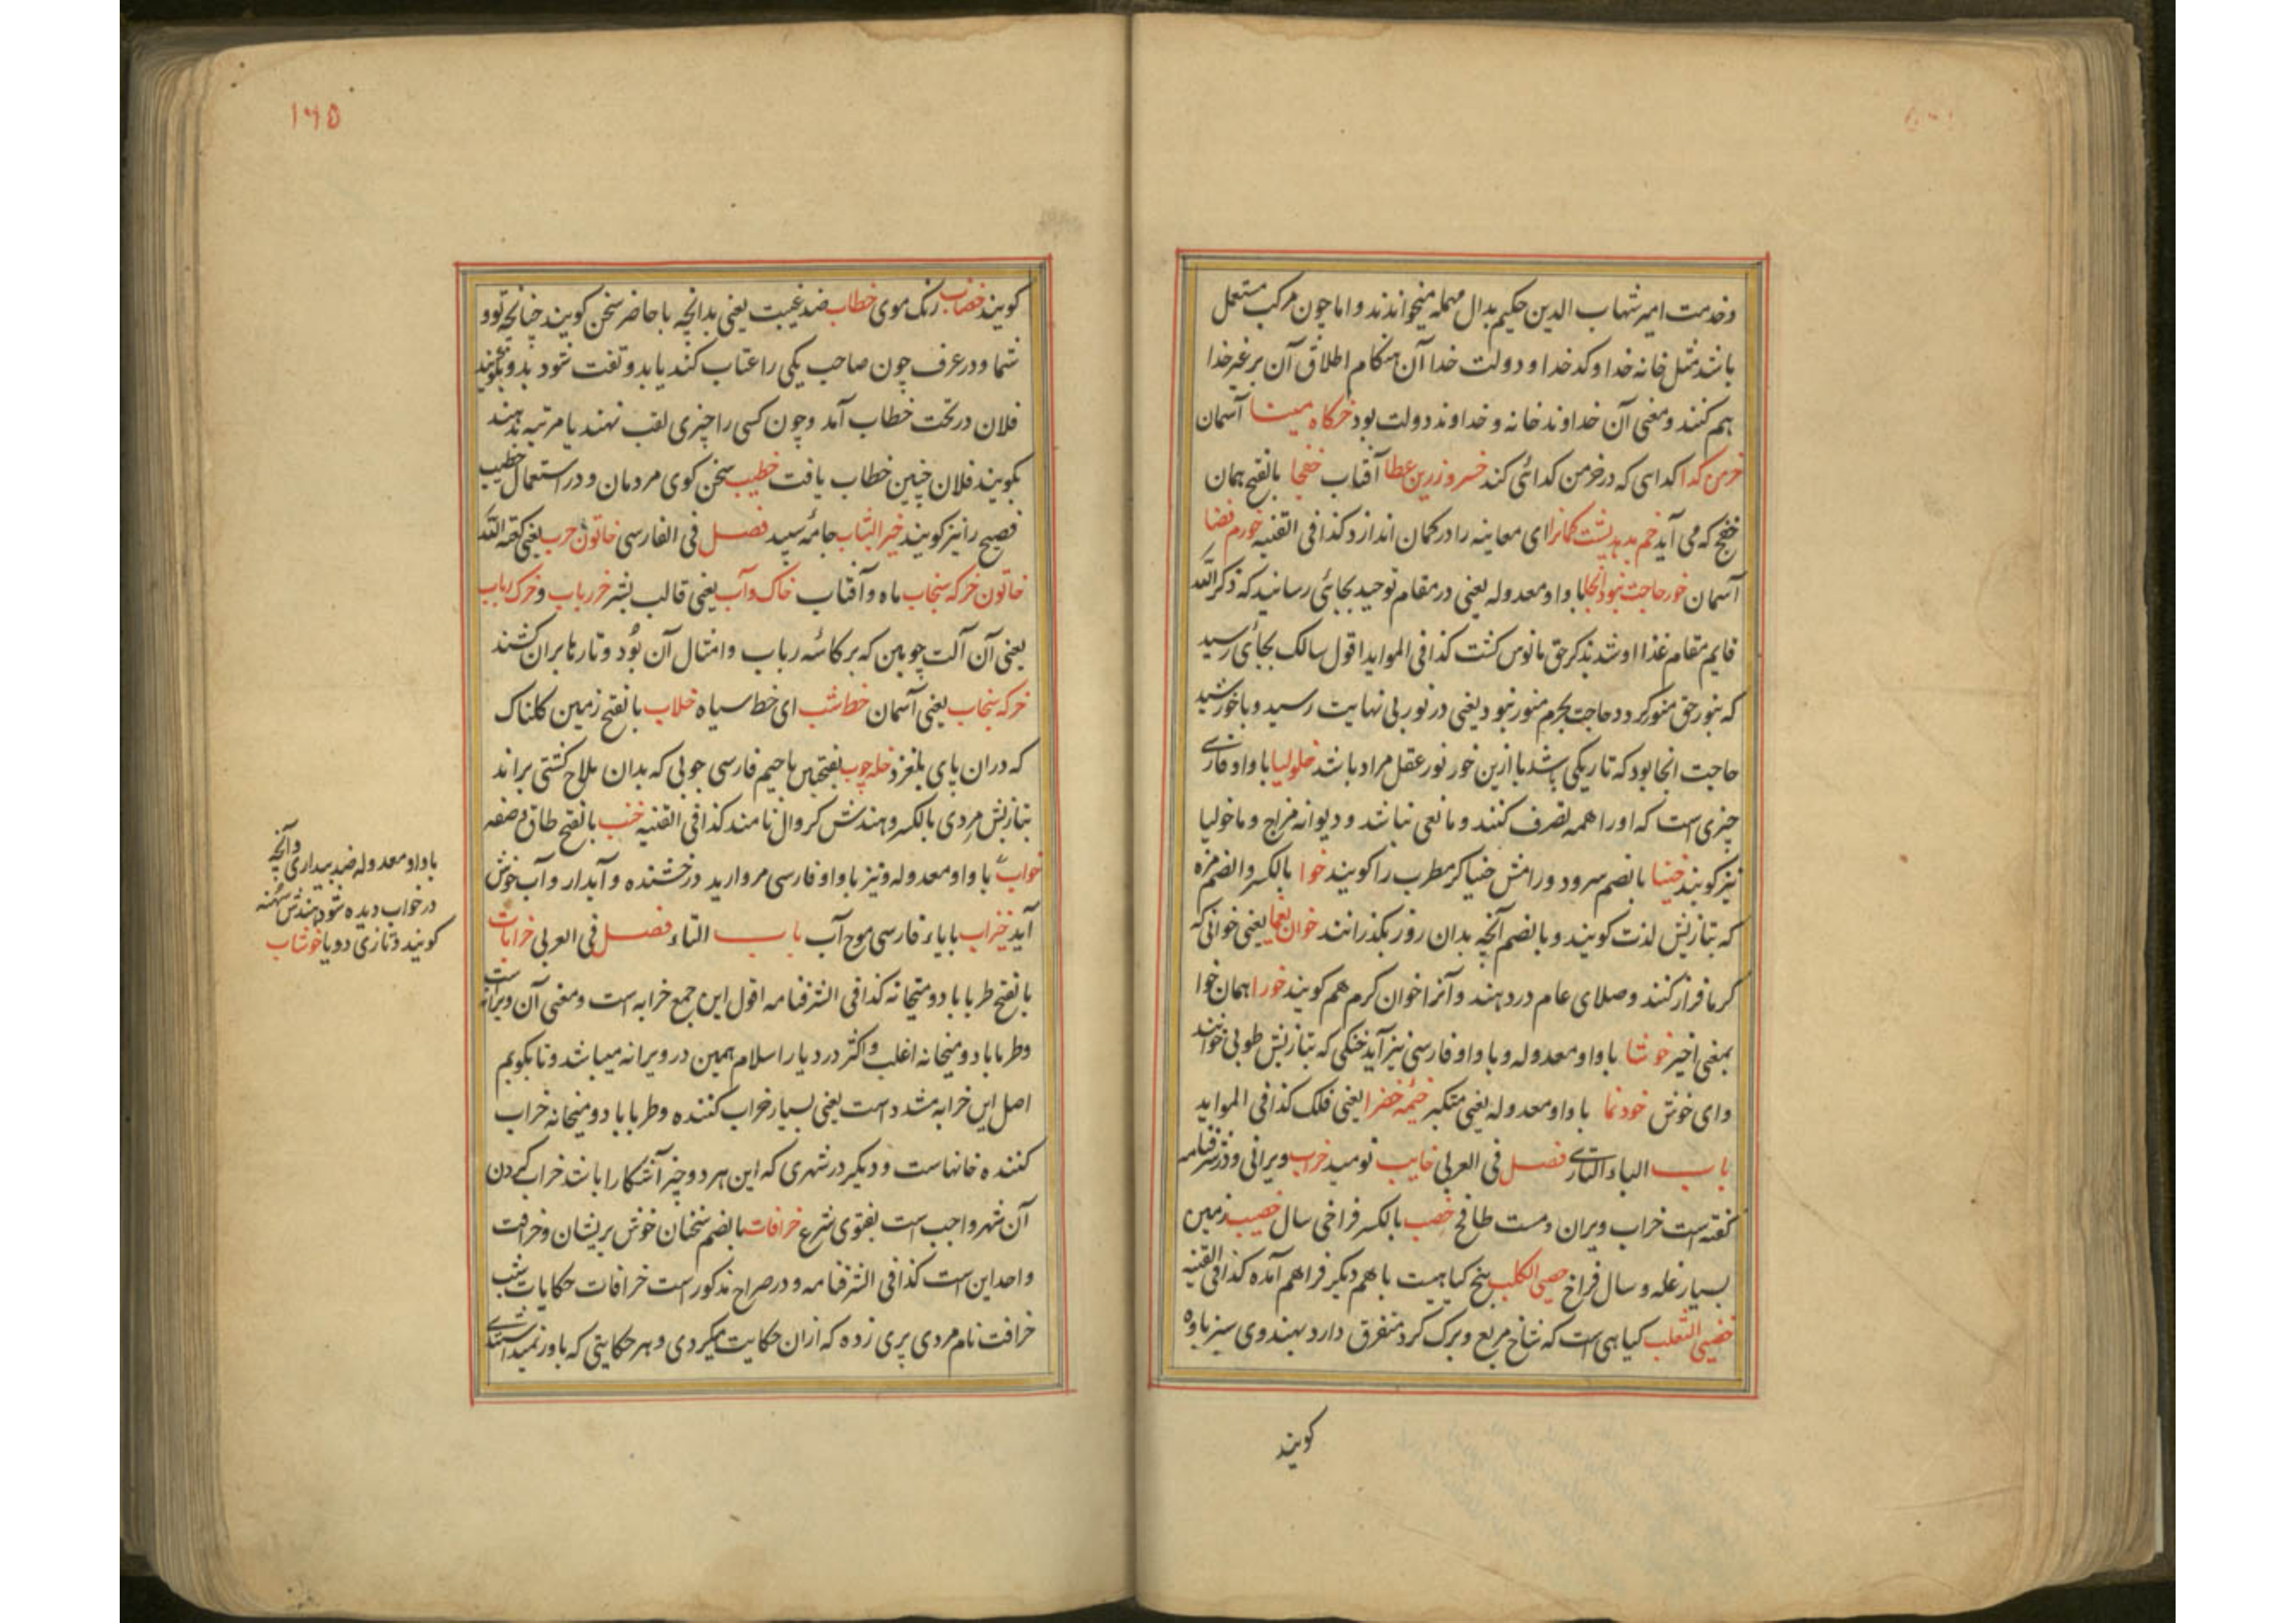 وخدمت امیر شهاب الدین حکیم بدال مهمله میخوانند و اما چون مرکب مستعمل
باشد مثل خانه خدا و کدخدا و دولت خدا آن هنکام اطلاق آن بر غیر خدا
هم کنند و معنی آن خداوند خانه و خداوند دولت بود خرکاه مینا آسمان
خرمن کدا کدایی که در خرمن کدائی کند خسرو زرین عطا آفتاب خفجا بالفتح همان
خفج که می آید خم بدهد پشت کمانرا ای معاینه را در کمان اندازد کذا فی القنیه خورم فضا
آسمان خور حاجت نبود آنجا با واو معدوله یعنی در مقام توحید بجائی رسانید که ذکر الله
قایم مقام غذا او شد بذکر حق مانوس کشت کذا فی المواید اقول سالک بجائی رسید
که بنور حق منور کردد حاجت بجرم منور نبود یعنی در نور بی نهایت رسید و با خورشید
حاجت انجا بود که تاریکی باشد یا ازین خور نور عقل مراد باشد خلولیا با واو فارسی
چیزی است که او را همه تصرف کنند و مانعی نباشد و دیوانه مزاج و ماخولیا
نیز کویند خنیا بالضم سرود و رامش خنیاکر مطرب را کویند خوا بالکسر والضم مزه
که بتازیش لذت کویند و بالضم آنچه بدان روز بکذرانند خوان یغما یعنی خوانی که
کرما فراز کنند و صلای عام در دهند و آنرا خوان کرم هم کویند خورا همان خوا
بمعنی اخیر خوشا با واو معدوله و با واو فارسی نیز آید خنکی که بتازیش طوبی خوانند
وای خوش خودنما با واو معدوله یعنی متکبر خیمه خضرا یعنی فلک کذا فی المواید
باب الباء التازی فصل فی العربی خایب نومید خراب ویرانی و در شرفنامه
کفته است خراب ویران و مست طافح خصب بالکسر فراخی سال خصیب زمین
بسیار غله و سال فراخ خصی الکلب بیخ کیاهیست با هم دیکر فراهم آمده کذا فی القنیه
خصی الثعلب کیاهی است که شاخ مربع و برک کرد متفرق دارد بهندوی
کویند
۱۶۵
کویند خضاب رنک موی خطاب ضد غیبت یعنی بدانچه با حاضر سخن کویند چنانچه تو و
شما و در عرف چون صاحب یکی را عتاب کند یا بدو تفت شود بدو بکویند
فلان در تحت خطاب آمد و چون کسی را چیزی لقب نهند یا مرتبه بدهند
بکویند فلان چنین خطاب یافت خطیب سخن کوی مردمان و در استعمال خطیب
فصیح را نیز کویند خیر الثیاب جامه سپید فصل فی الفارسی خاتون عرب یعنی کعبة الله
خاتون خرکه سنجاب ماه و آفتاب خاک و آب یعنی قالب بشر خر رباب و خرک رباب
یعنی آن آلت چوبین که بر کاسه رباب و امثال آن بود و تارها بران کشند
خرکه سنجاب یعنی آسمان خط شب ای خط سیاه خلاب بالفتح زمین کلناک
که دران پای بلغزد خله چوب بفتحتین با جیم فارسی چوبی که بدان ملاح کشتی براند
بتازیش مردی بالکسر و هندش کروال نامند کذا فی القنیه خنب بالفتح طاق و صفه
خواب با واو معدوله و نیز با واو فارسی مروارید درخشنده و آبدار و آب خوش
آید خیزاب با یاء فارسی موج آب باب التاء فصل فی العربی خرابات
بالفتح طرباباد و میخانه کذا فی الشرفنامه اقول این جمع خرابه است و معنی آن ویرانه است
و طرباباد و میخانه اغلب و اکثر در دیار اسلام همین در ویرانه میباشد و تا بکویم
اصل این خرابه مشدد است یعنی بسیار خراب کننده و طرباباد و میخانه خراب
کننده خانهاست و دیکر در شهری که این هر دو چیز آشکارا باشد خراب کردن
آن شهر واجب است بفتوی شرع خرافات بالضم سخنان خوش پریشان و خرافت
واحد این است کذا فی الشرفنامه و در صراح مذکور است خرافات حکایات شب
خرافت نام مردی پری زده که ازان حکایت میکردی و هر حکایتی که باور نمیداشتندی
با واو معدوله ضد بیداری و آنچه
در خواب دیده شود هندش سپنه
کویند و تازی رویا خوشاب